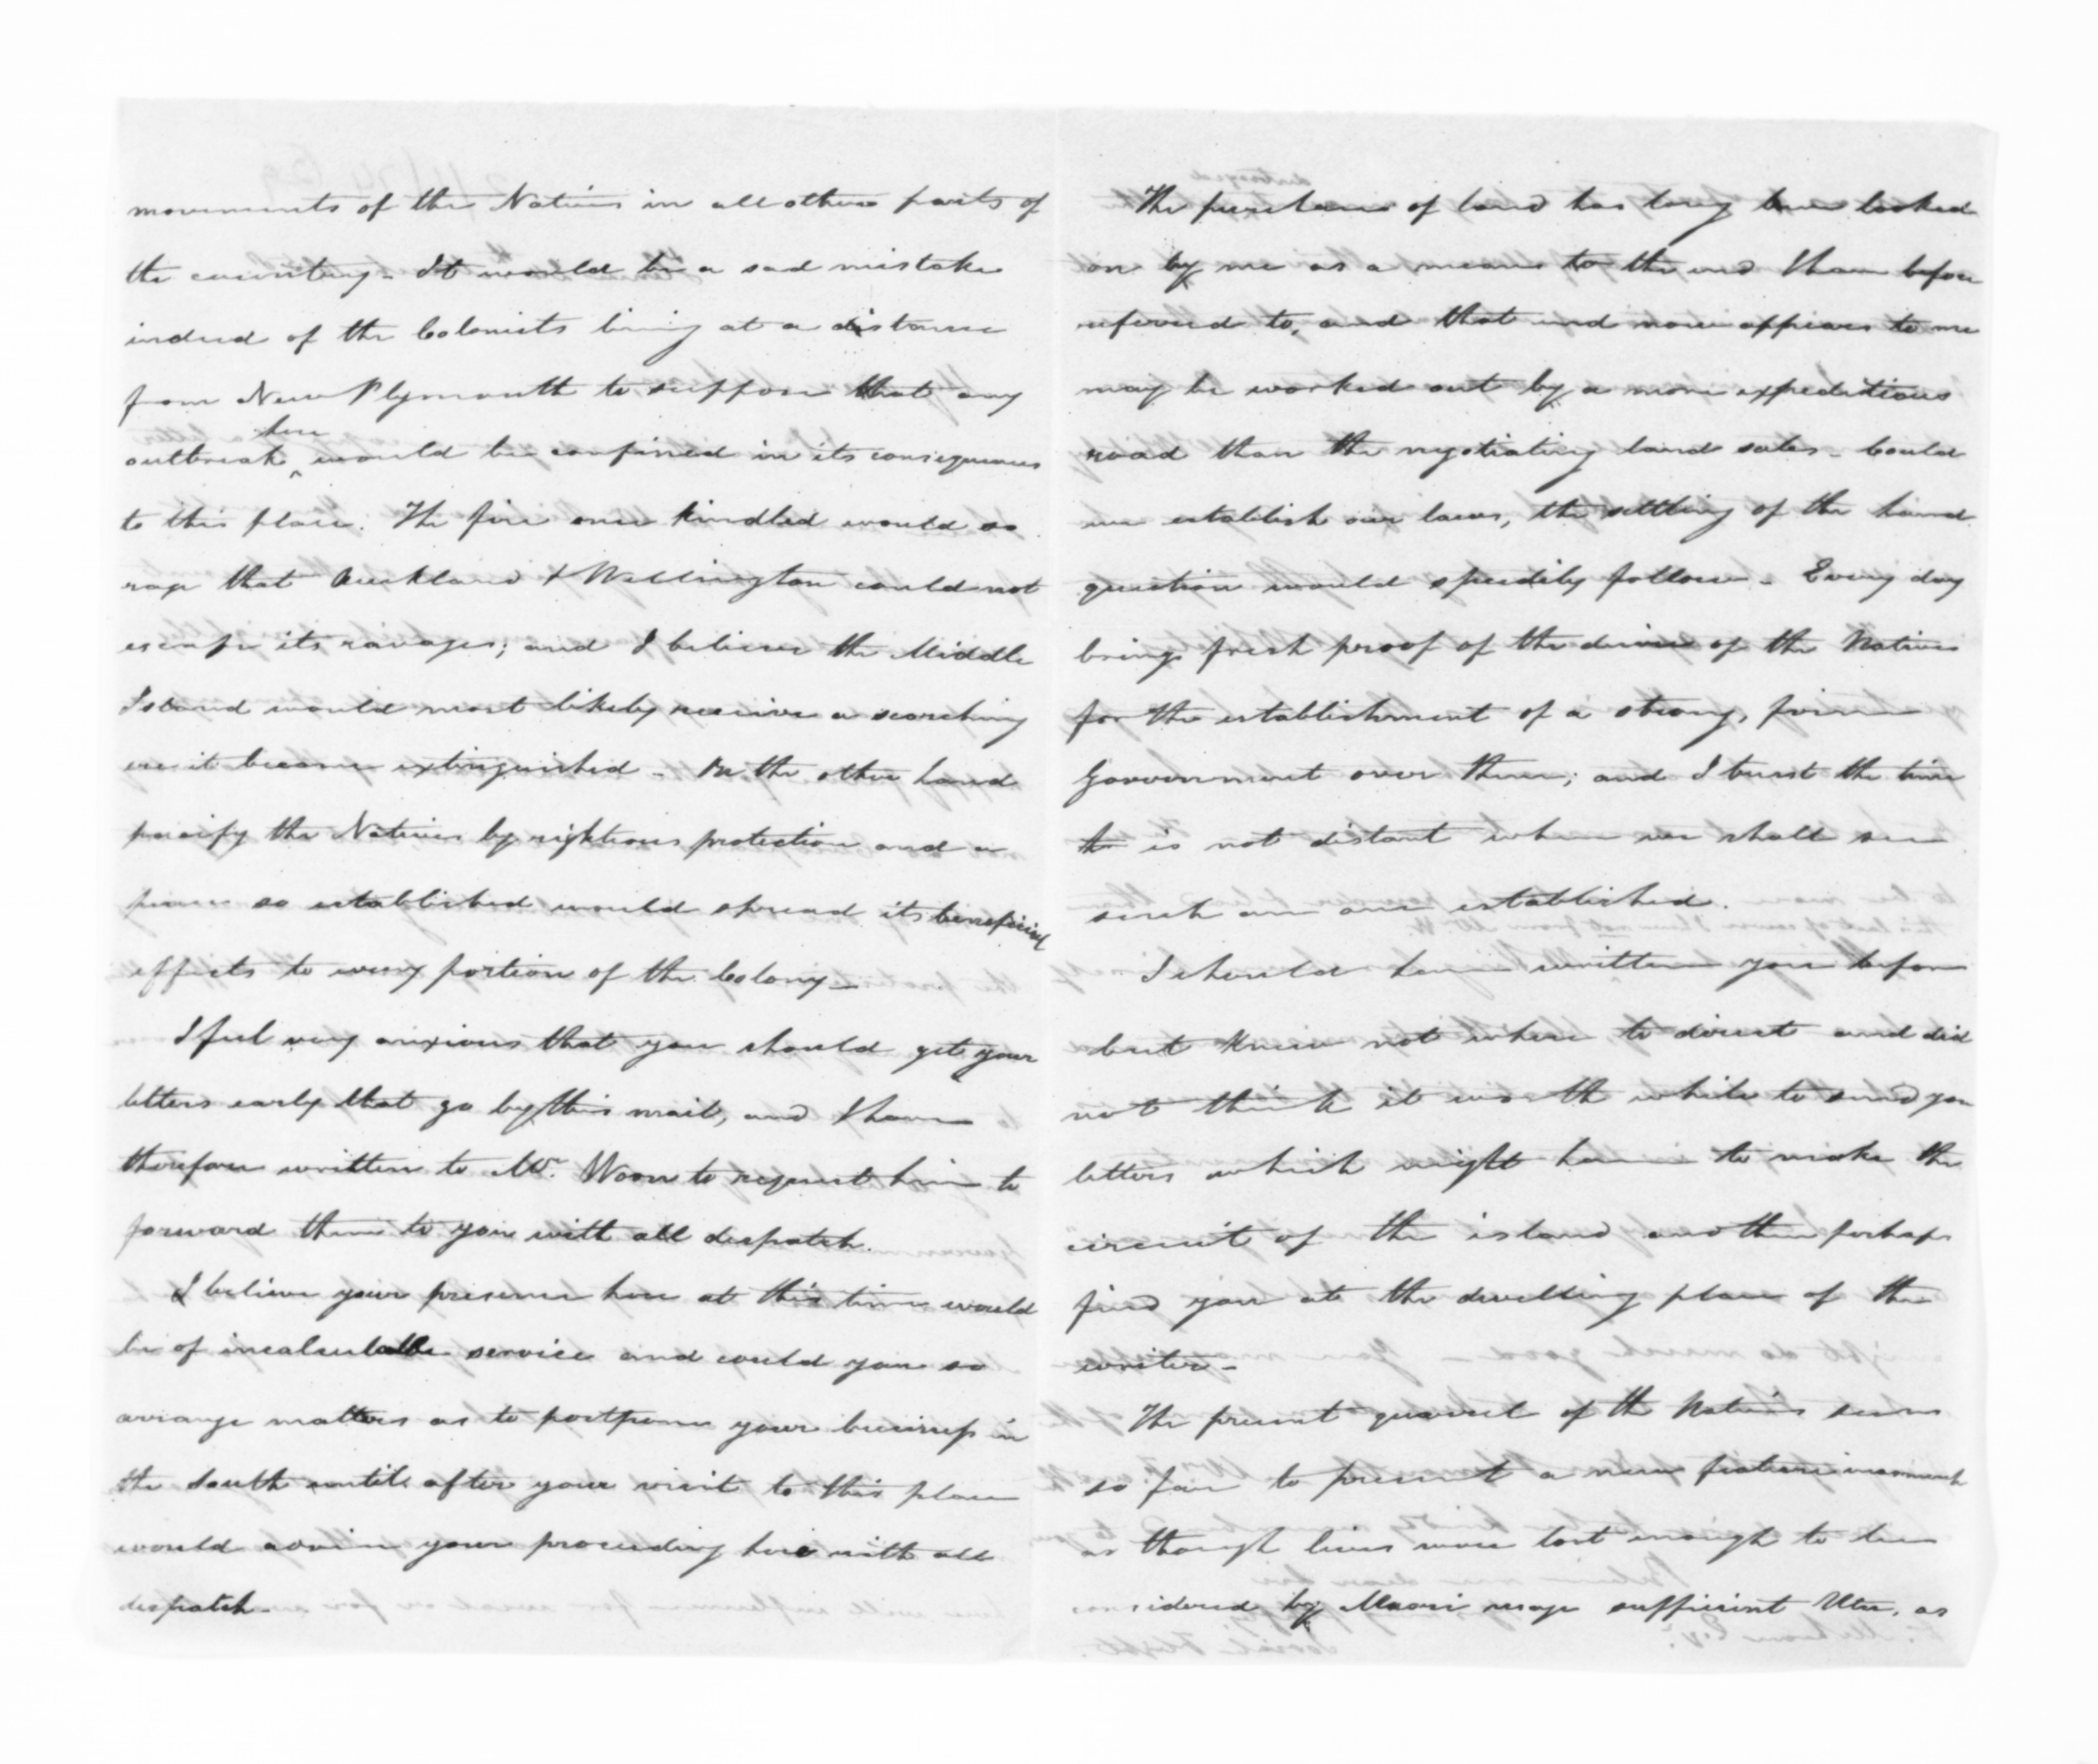 movements of the Natives in all other parts of
the country - It would be a sad mistake
indeed of the Colonists living at a distance
from New Plymouth to suppose that any
here
outbreak would be confined in its consequences
to this place. The fire once kindled would so
rage that Auckland & Wellington could not
escape its ravages; and I believe the Middle
Island would most likely receive a scorching
ere it became extinguished - On the other hand
pacify the Natives by righteous protection and a
peace so established would spread its beneficial
effects to every portion of the Colony -
I feel very anxious that you should get your
letters early that go by this mail, and I have
therefore written to Mr. Woon to request him to
forward them to you with all despatch.
I believe your presence here at this time would
be of incalculable service and could you so
arrange matters as to postpone your business in
the South until after your visit to this place
would advise your proceeding here with all
despatch -
The purchase of land has long been looked
on by me as a means to the end I have before
referred to, and that end now appears to me
may be worked out by a more expeditious
road than the negotiating land sales - Could
we establish our laws, the settling of the land
question would speedily follow - Every day
brings fresh proof of the desire of the Natives
for the establishment of a strong, firm
Government over them; and I trust the time
is not distant when we shall see
such an one established.
I should have written you before
but knew not where to direct and did
not think it worth while to send you
letters which might have to make the
circuit of the island and then perhaps
find you at the dwelling place of the
writer -
The present quarrel of the Natives seems
so far to present a new feature inasmuch
as though lives were lost enough to be
considered by Maori usage sufficient Utu, as